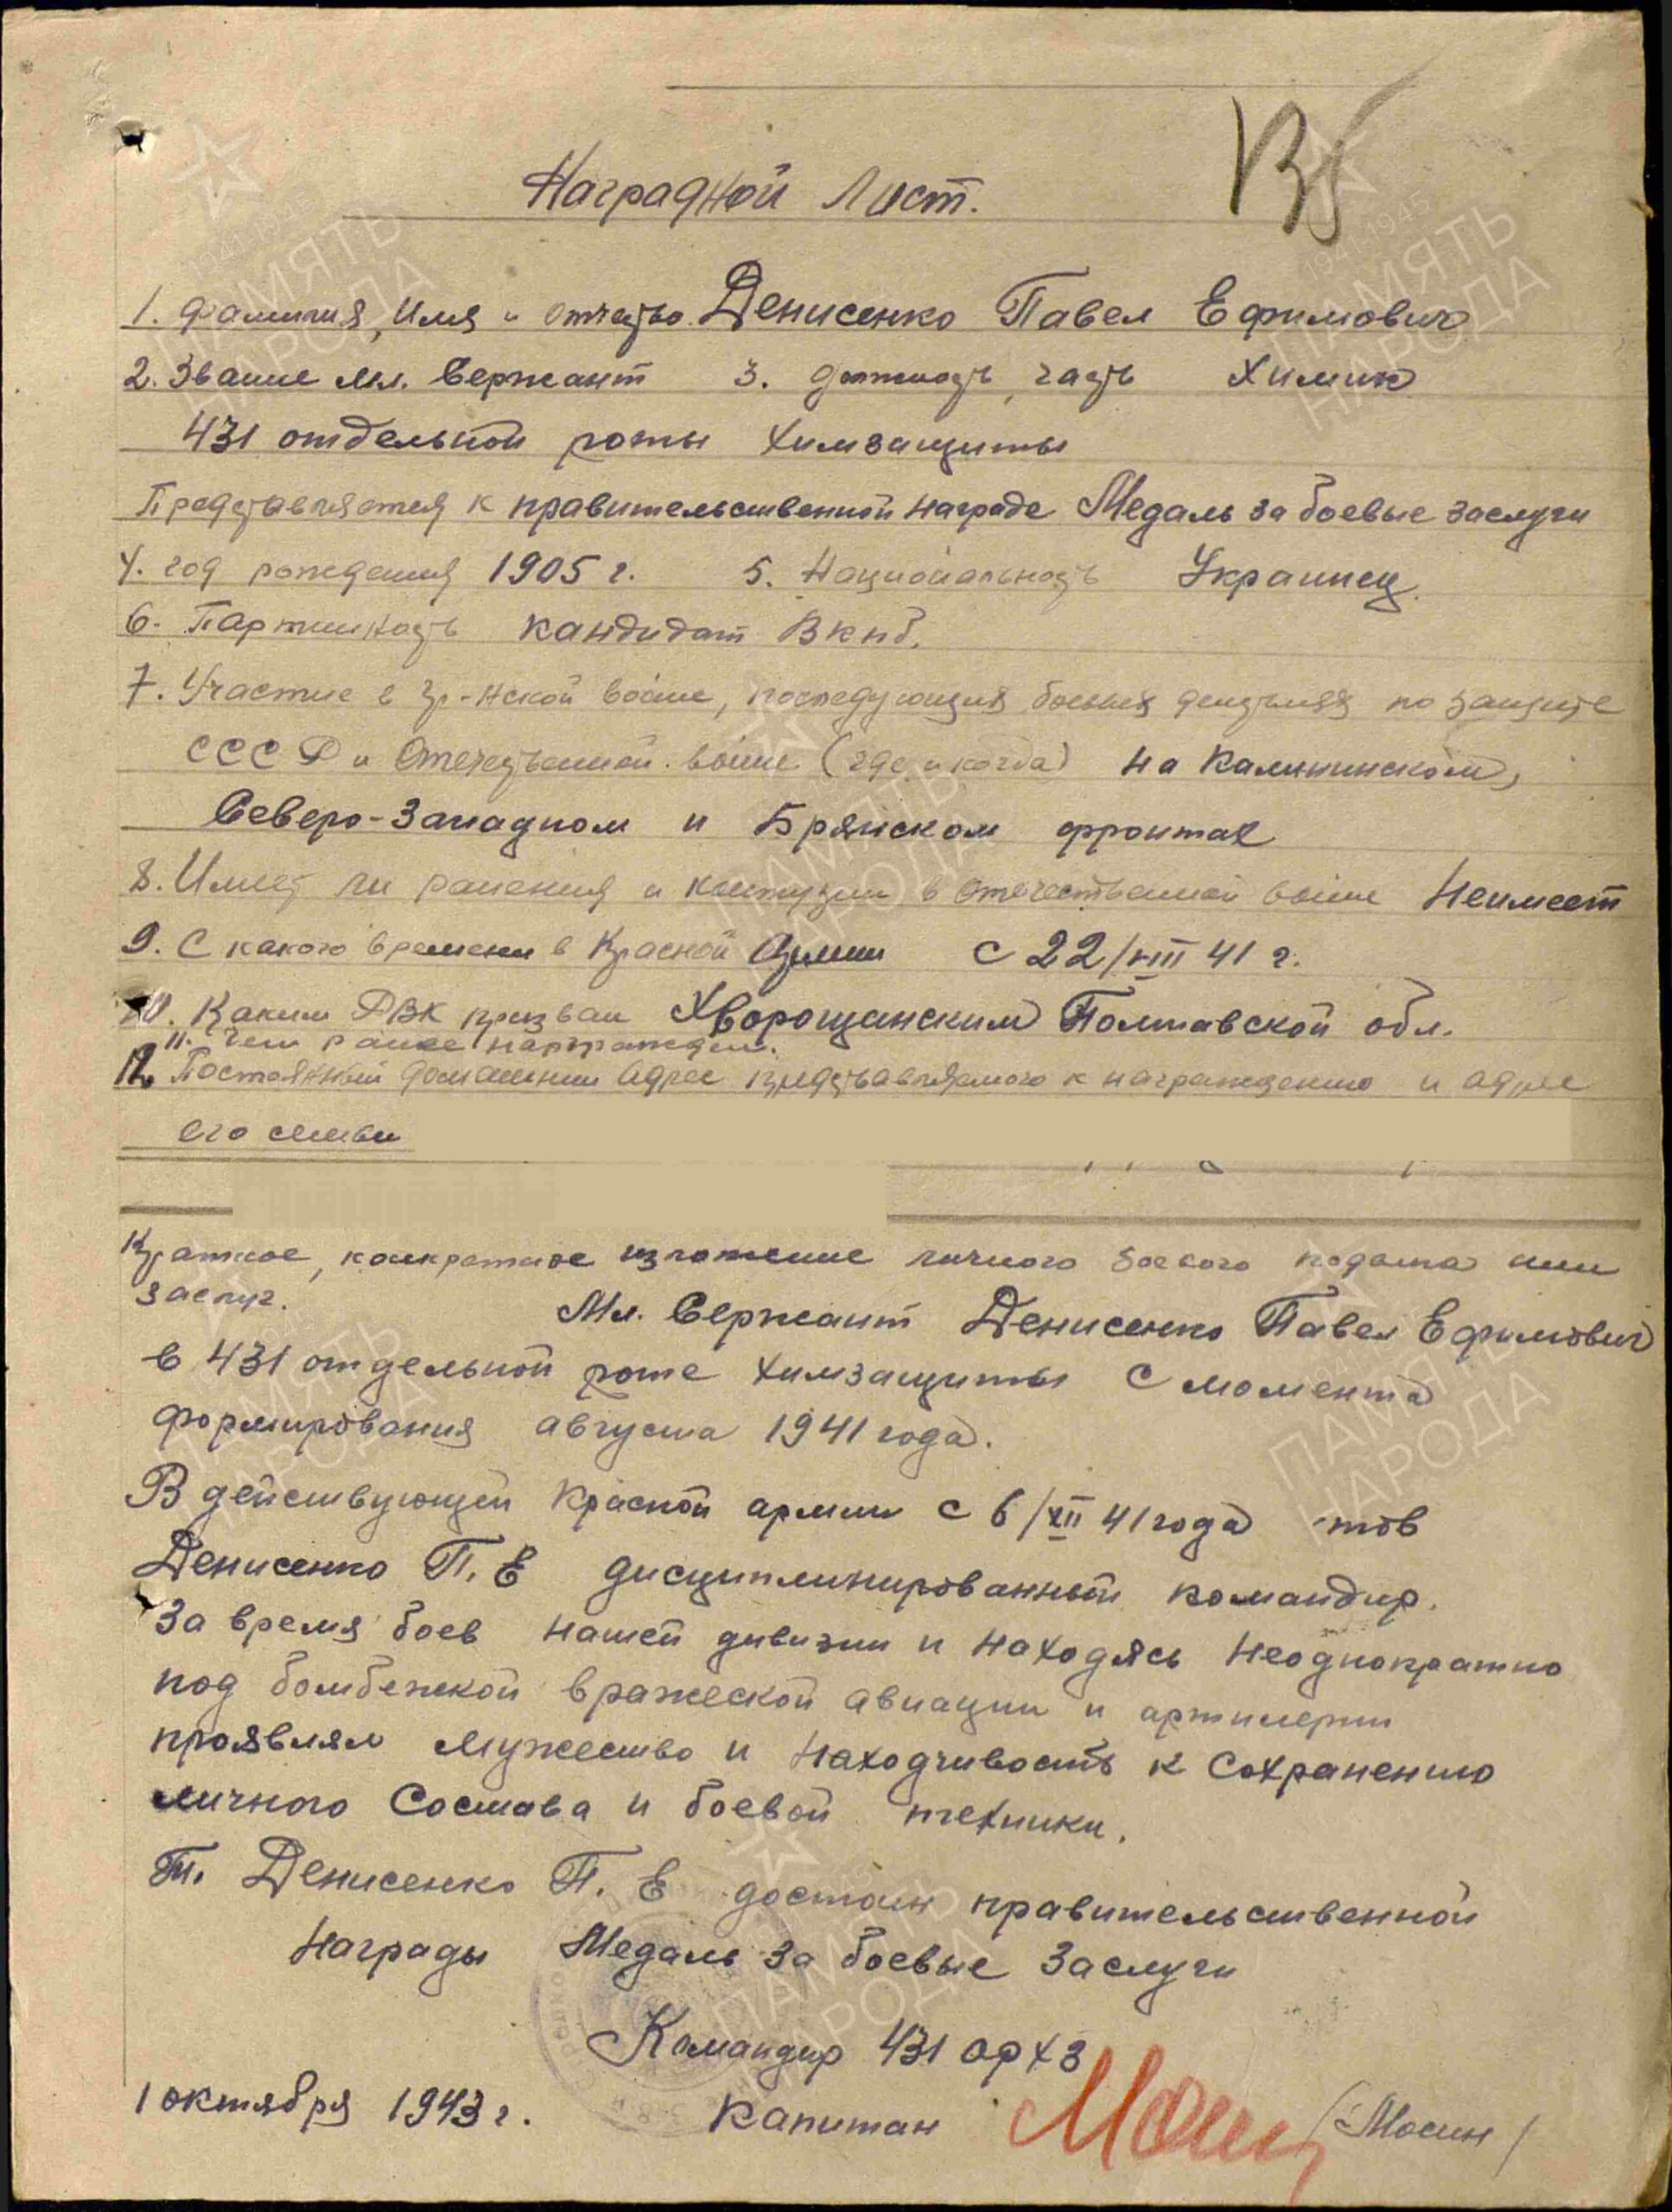 Наградной Лист.
1. Фамилия, Имя и отчество Денисенко Павел Ефимович
2. Звание мл. Сержант 3. должность, часть Химик
431 отдельной роты химзащиты
Представляется к правительственной награде Медаль за боевые заслуги
4. год рождения 1905 г. 5. Национальность Украинец.
6. Партийность кандидат ВКПб.
7. Участие в гр-нской войне, последующих боевых действиях по защите
СССР и Отечественной войне (где и когда) на Калининском,
Северо-Западном и Брянском фронтах
8. Имеет ли ранения и контузии в отечественной войне Неимеет
9. С какого времени в Красной Армии с 22/VIII 41 г.
10. Каким РВК призван Хворощанским Полтавской обл.
11. Чем ранее награжден.
12. Постоянный домашний адрес представляемого к награждению и адрес
его семьи
Краткое, конкретное изложение личного боевого подвига или
заслуг.
Мл. Сержант Денисенко Павел Ефимович
в 431 отдельной роте химзащиты с момента
формирования августа 1941 года.
В действующей Красной армии с 6/XII 41 года тов
Денисенко П. Е дисциплинированный командир.
За время боев нашей дивизии и находясь неоднократно
под бомбежкой вражеской авиации и артилерии
проявлял мужество и находчивость к сохранению
личного состава и боевой техники.
Т. Денисенко П. Е достоин правительственной
Награды Медаль за боевые заслуги
Командир 431 ОРХЗ
1 октября 1943 г. Капитан /Мосин/
ПАМЯТЬ НАРОДА
1941-1945